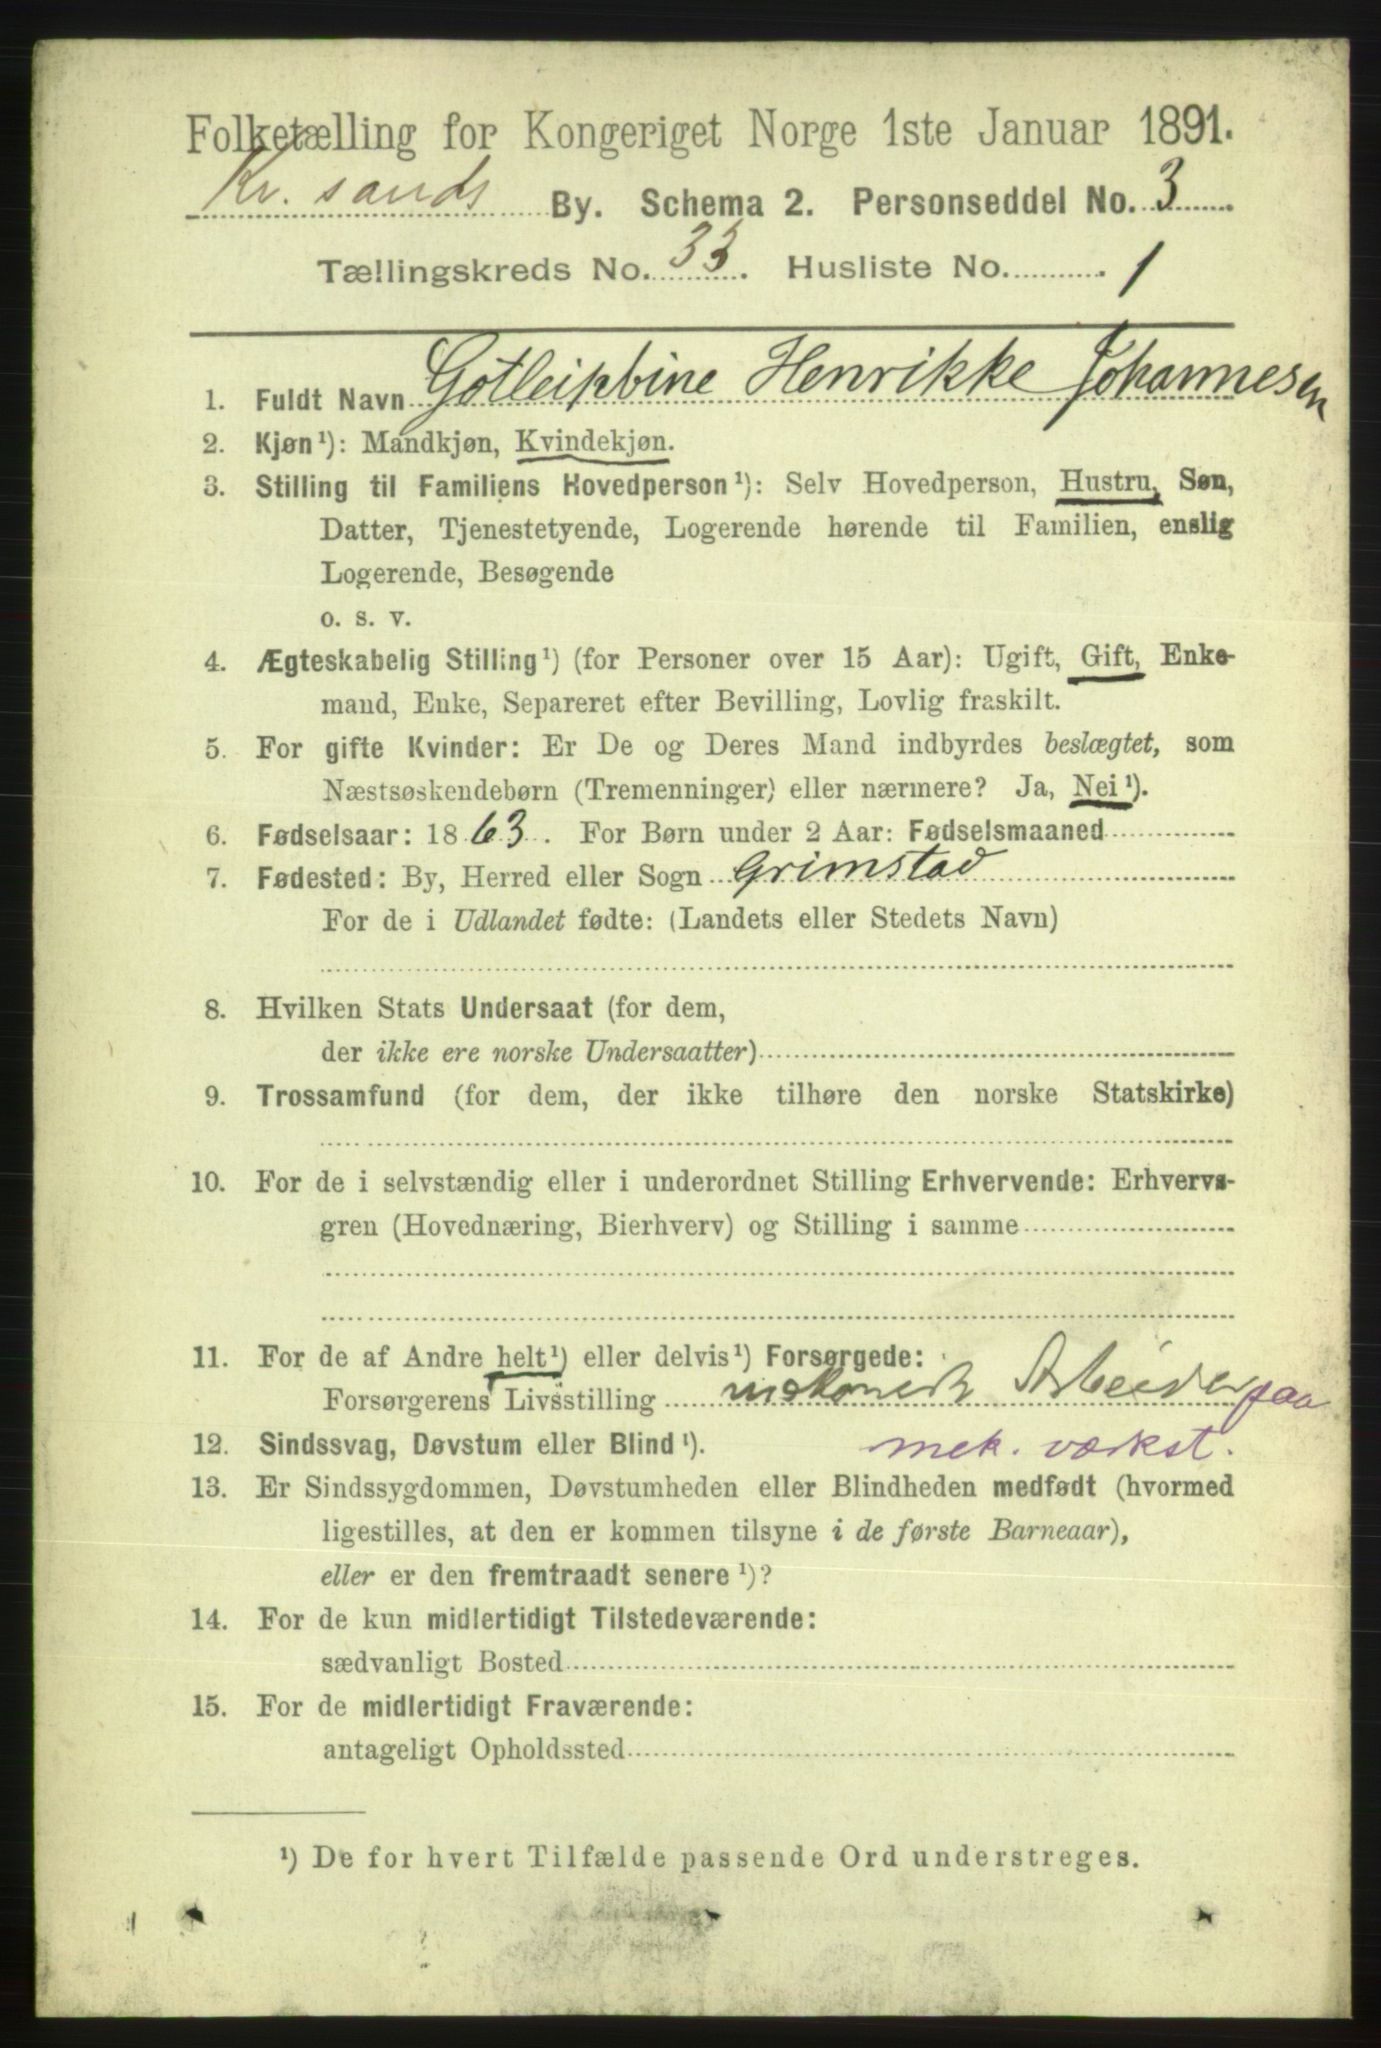 Folketælling for Kongeriget Norge 1ste Januar 1891.
Kr. sands By. Schema 2. Personseddel No. 3
Tællingskreds No. 33. Husliste No. 1
1. Fuldt Navn Gotleipbine Henrikke Johannesen
2. Kjøn¹): Mandkjøn, Kvindekjøn.
3. Stilling til Familiens Hovedperson¹): Selv Hovedperson, Hustru, Søn,
Datter, Tjenestetyende, Logerende hørende til Familien, enslig
Logerende, Besøgende
o. s. v.
4. Ægteskabelig Stilling¹) (for Personer over 15 Aar): Ugift, Gift, Enke-
mand, Enke, Separeret efter Bevilling, Lovlig fraskilt.
5. For gifte Kvinder: Er De og Deres Mand indbyrdes beslægtet, som
Næstsøskendebørn (Tremenninger) eller nærmere? Ja, Nei¹).
6. Fødselsaar: 1863. For Børn under 2 Aar: Fødselsmaaned
7. Fødested: By, Herred eller Sogn Grimstad
For de i Udlandet fødte: (Landets eller Stedets Navn)
8. Hvilken Stats Undersaat (for dem,
der ikke ere norske Undersaatter)
9. Trossamfund (for dem, der ikke tilhøre den norske Statskirke)
10. For de i selvstændig eller i underordnet Stilling Erhvervende: Erhvervs-
gren (Hovednæring, Bierhverv) og Stilling i samme
11. For de af Andre helt¹) eller delvis¹) Forsørgede:
Forsørgerens Livsstilling Arbeider paa
12. Sindssvag, Døvstum eller Blind¹). mek. værkst.
13. Er Sindssygdommen, Døvstumheden eller Blindheden medfødt (hvormed
ligestilles, at den er kommen tilsyne i de første Barneaar),
eller er den fremtraadt senere¹)?
14. For de kun midlertidigt Tilstedeværende:
sædvanligt Bosted
15. For de midlertidigt Fraværende:
antageligt Opholdssted
¹) De for hvert Tilfælde passende Ord understreges.